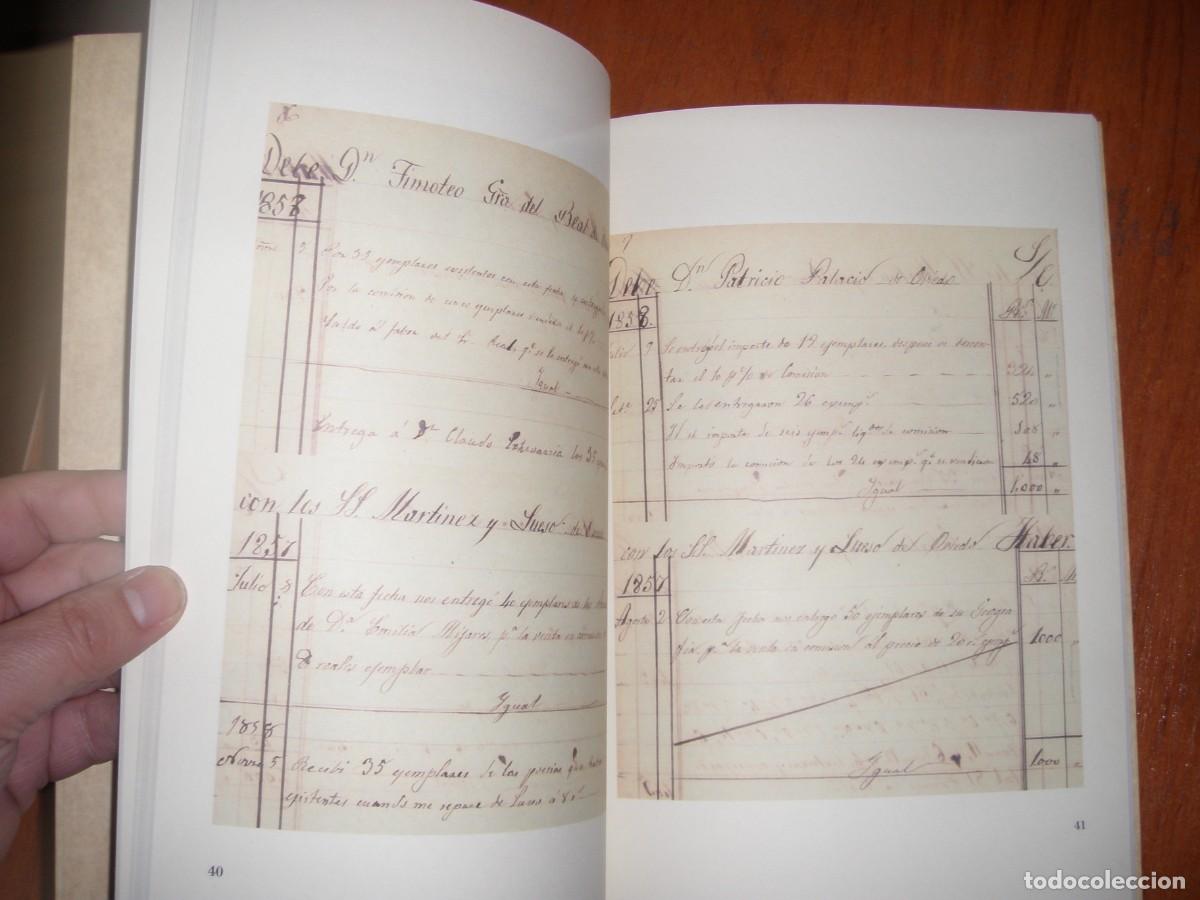 Debe Dn Timoteo Gra del Real de
1858
3 Por 35 ejemplares existentes con esta fecha
Por la comision de cinco ejemplares
Saldo á favor del Sr. Real, qe se le entregó
Igual
Entrega á Dn Claudio Echevarria los 35
con los SS. Martinez y Lueso de
1857
Julio 8 Con esta fecha nos entregó 40 ejemplares de las
de Da. Emilia Mijares pa la venta en
8 reales ejemplar
Igual
1858
Novre 5 Recibí 35 ejemplares de las poesias que
existentes cuando me separé de Lueso á 8 rs
40
Debe Dn Patricio Palacio de Oviedo S/C.
1858. Rs. Ms.
Julio 3 Se entregó el importe de 12 ejemplares despues de descon-
tar el 10 p% de Comision 324 "
25 Se les entregaron 26 ejemps. 520 "
Id el importe de seis ejempls. de comision 108 "
Importó la comision de los 24 ejemps. qe se vendieron 48 "
Igual 1.000 "
con los SS. Martinez y Lueso de Oviedo Haber.
1857 Rs. M
Agosto 2 Con esta fecha nos entregó 50 ejemplares de su Geogra
fia, pa la venta en comision al precio de 20 rs. ejempr 1000 "
Igual 1000
41
todocoleccion